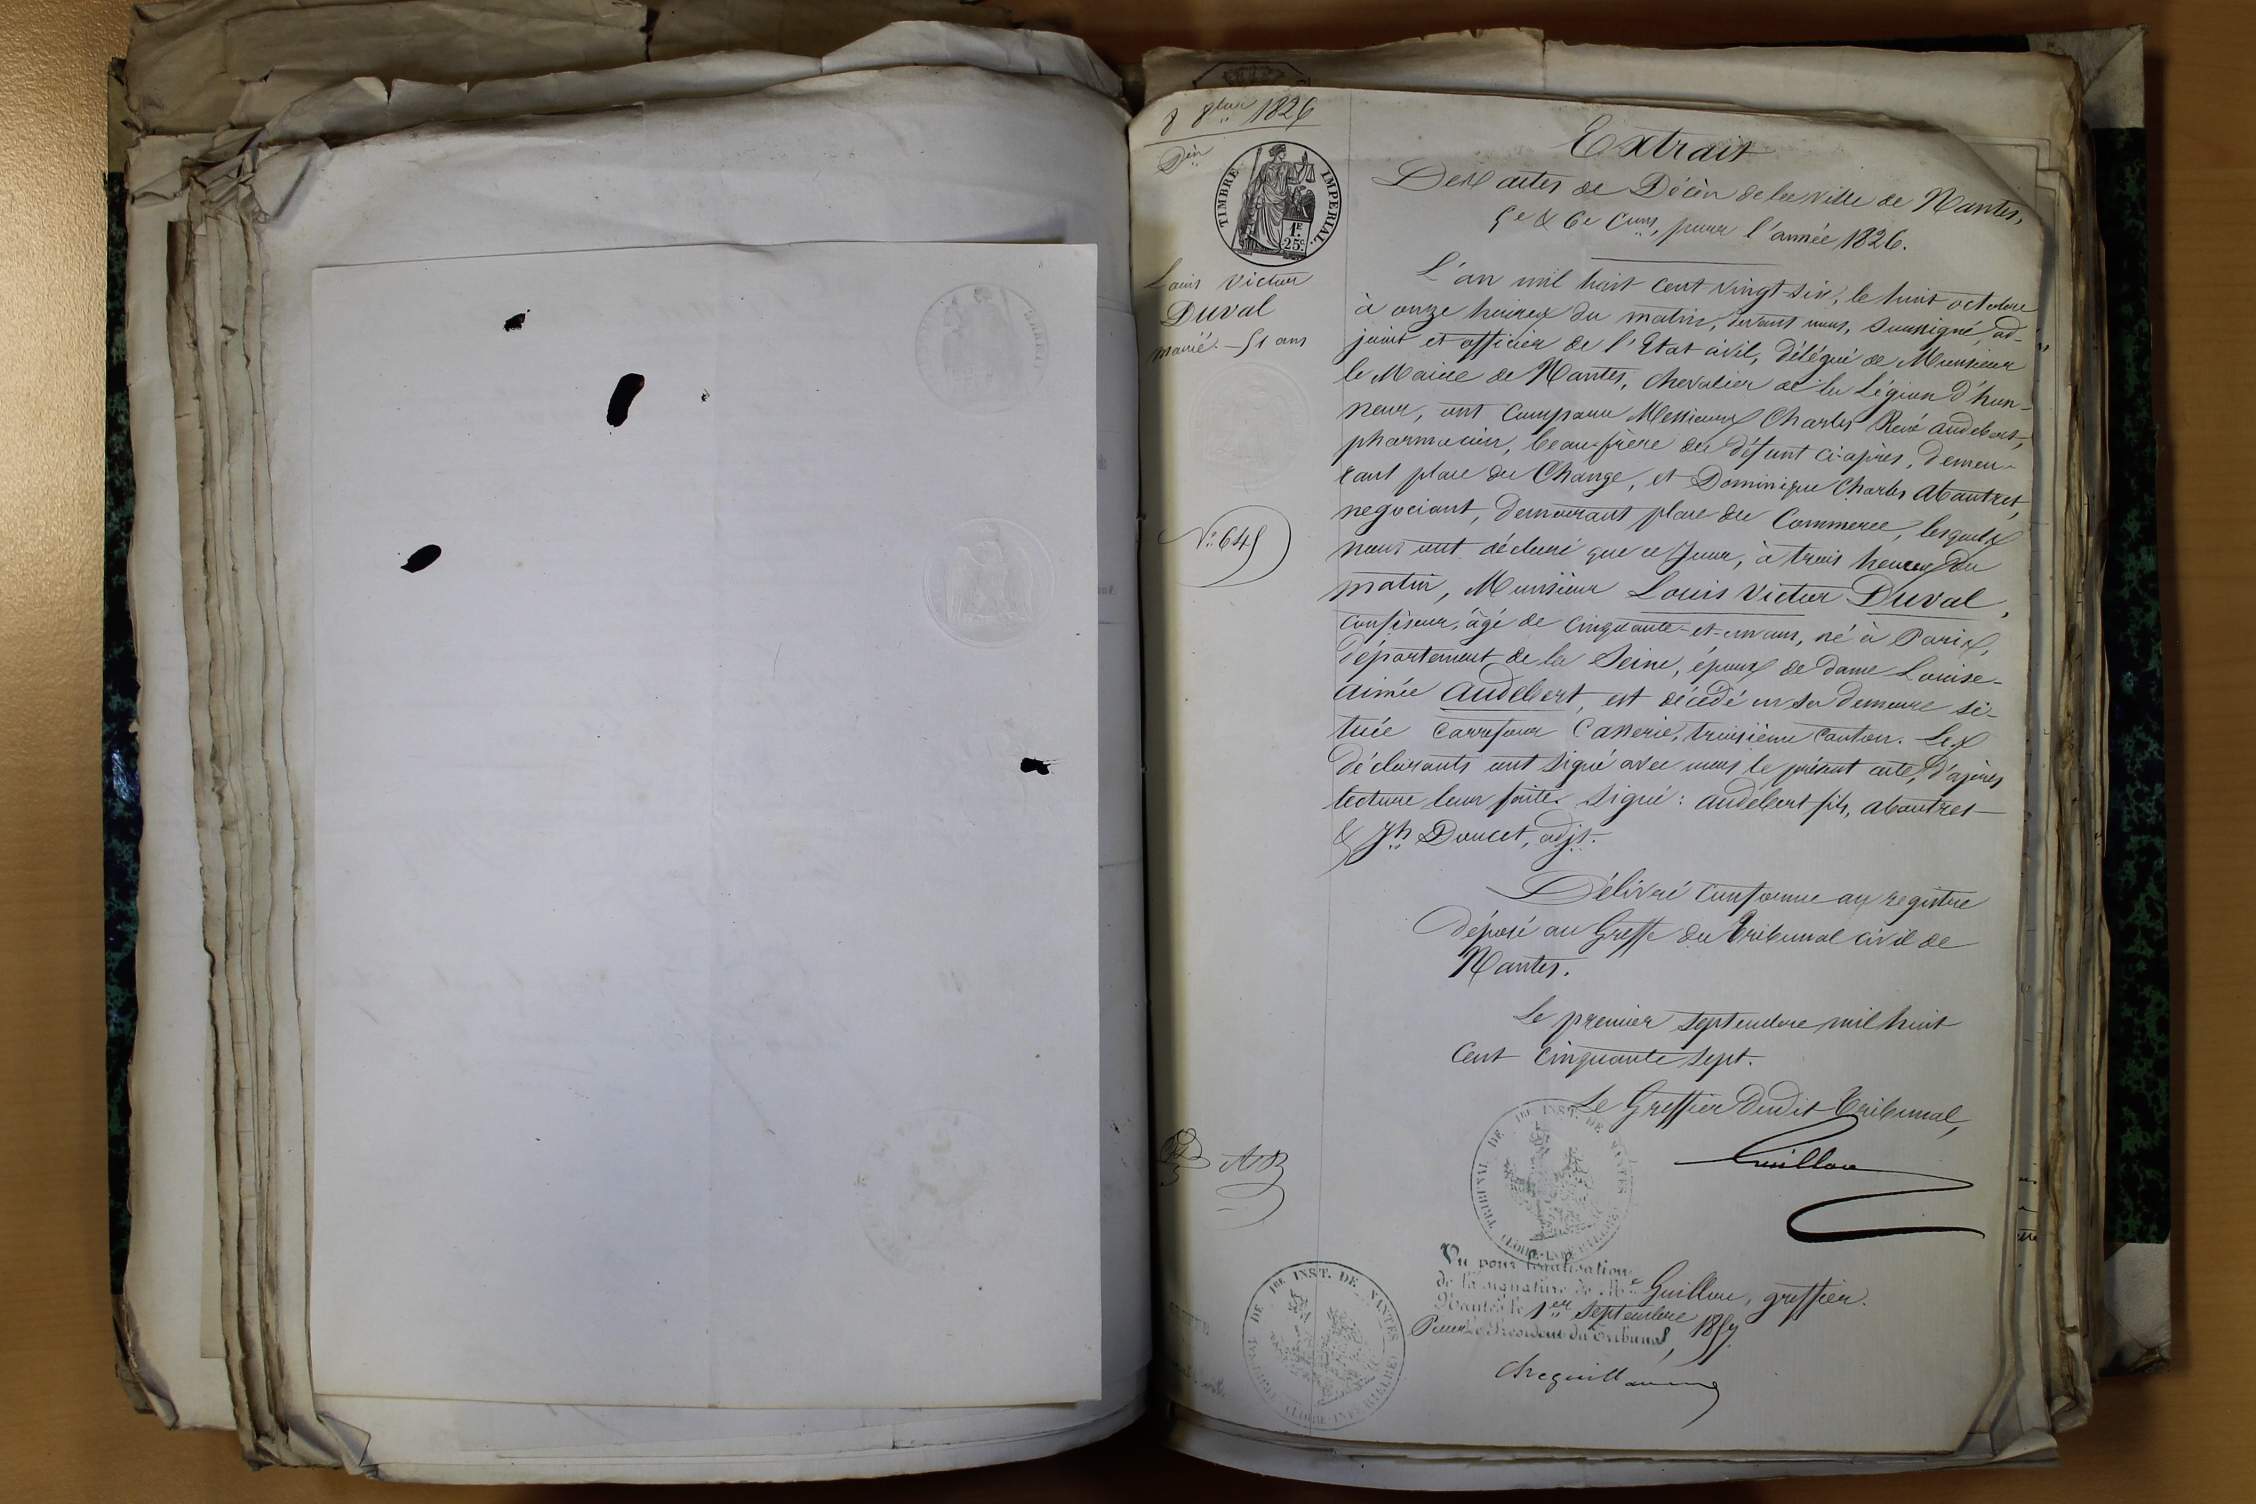 8 8bre 1826
Dcès
TIMBRE IMPERIAL.
1F.
25c.
Louis Victor
DUVAL
marié. - 51 ans
No. 645
Extrait
Des actes de Décès de la ville de Nantes,
5e & 6e Cons, pour l'année 1826.
L'an mil huit cent vingt-six, le huit octobre
à onze heures du matin, devant nous, soussigné, ad-
joint et officier de l'Etat civil, délégué de Monsieur
le Maire de Nantes, chevalier de la Légion d'hon-
neur, ont comparu Messieurs Charles René Audebert,
pharmacien, beau-frère du défunt ci-après, demeu-
rant place du Change, et Dominique Charles Abautret,
negociant, demeurant place du Commerce, lesquels
nous ont déclaré que ce Jour, à trois heures du
matin, Monsieur Louis Victor Duval,
confiseur, âgé de cinquante-et-un ans, né à Paris,
département de la Seine, époux de dame Louise-
Aimée Audebert, est décédé en sa demeure si-
tuée carrefour Casserie, troisième canton. Les
déclarants ont signé avec nous le présent acte, d'après
lecture leur faite. Signé: Audebert fils, Abautret
& Jh Doucet, adjt.
Délivré conforme au registre
déposé au Greffe du Tribunal civil de
Nantes.
Le premier septembre mil huit
cent cinquante sept.
Le Greffier dudit Tribunal,
Guillou
TRIBUNAL DE 1RE INST. DE NANTES
(LOIRE-INFÉRIEURE)
Vu pour légalisation
de la signature de Me Guillou, greffier.
Nantes le 1er septembre 1857
Pour Le Président du Tribunal,
TRIBUNAL DE 1RE INST. DE NANTES
(LOIRE-INFÉRIEURE)